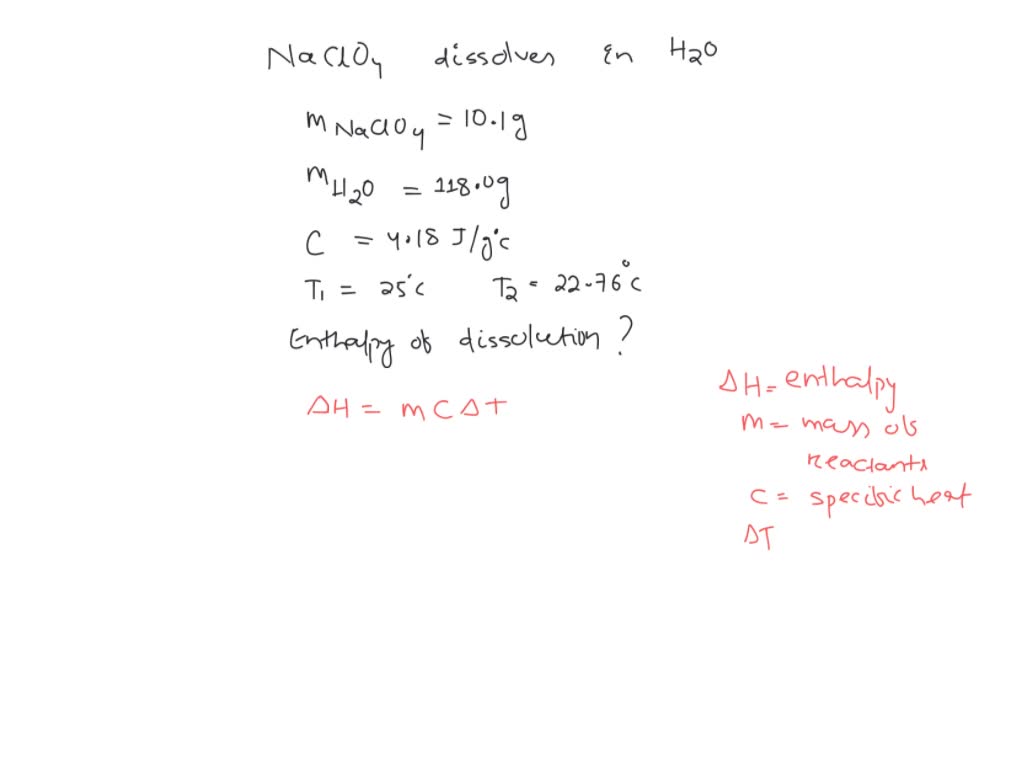 NaClO4 dissolves in H2O
m NaClO4 = 10.1g
mH2O = 118.0g
C = 4.18 J/g°c
T1 = 25°c T2 = 22.76°c
Enthalpy of dissolution?
ΔH = m C Δ T
ΔH = enthalpy
m = mass of
reactants
c = specific heat
ΔT